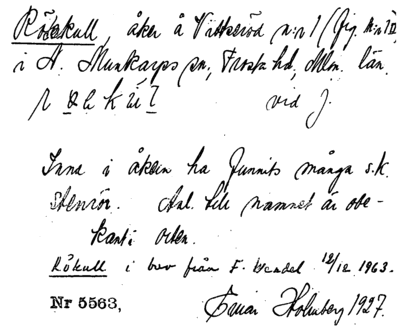 Rösakull, åker å Vittseröd n:r 1 (fig. N:r 12)
i N. Munkarps sn, Frosta hd, Mlm. län.
vid J.
Inne i åkern ha funnits många s.k.
stenrör. Anl. till namnet är obe-
kant i orten.
Rökull i brev från F. Wendel 12/12 1963.
Nr 5563, Einar Holmberg 1927.